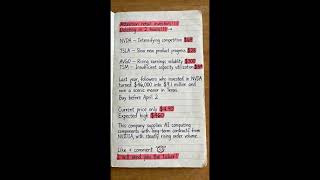 Attention retail investors!!!
Deleting in 2 hours!!! →
NVDA – Intensifying competition
TSLA – Slow new product progress $28
AVGO – Rising earnings volatility $300
TSM – Insufficient capacity utilization
Last year, followers who invested in NVDA
turned $96,000 into $9.1 million and
won a scenic manor in Texas.
Buy before April 2.
Current price only $4.93
Expected high $960
This company supplies AI computing
components with long-term contracts from
NVIDIA, with steadily rising order volume.
Like + comment
I will send you the ticker!